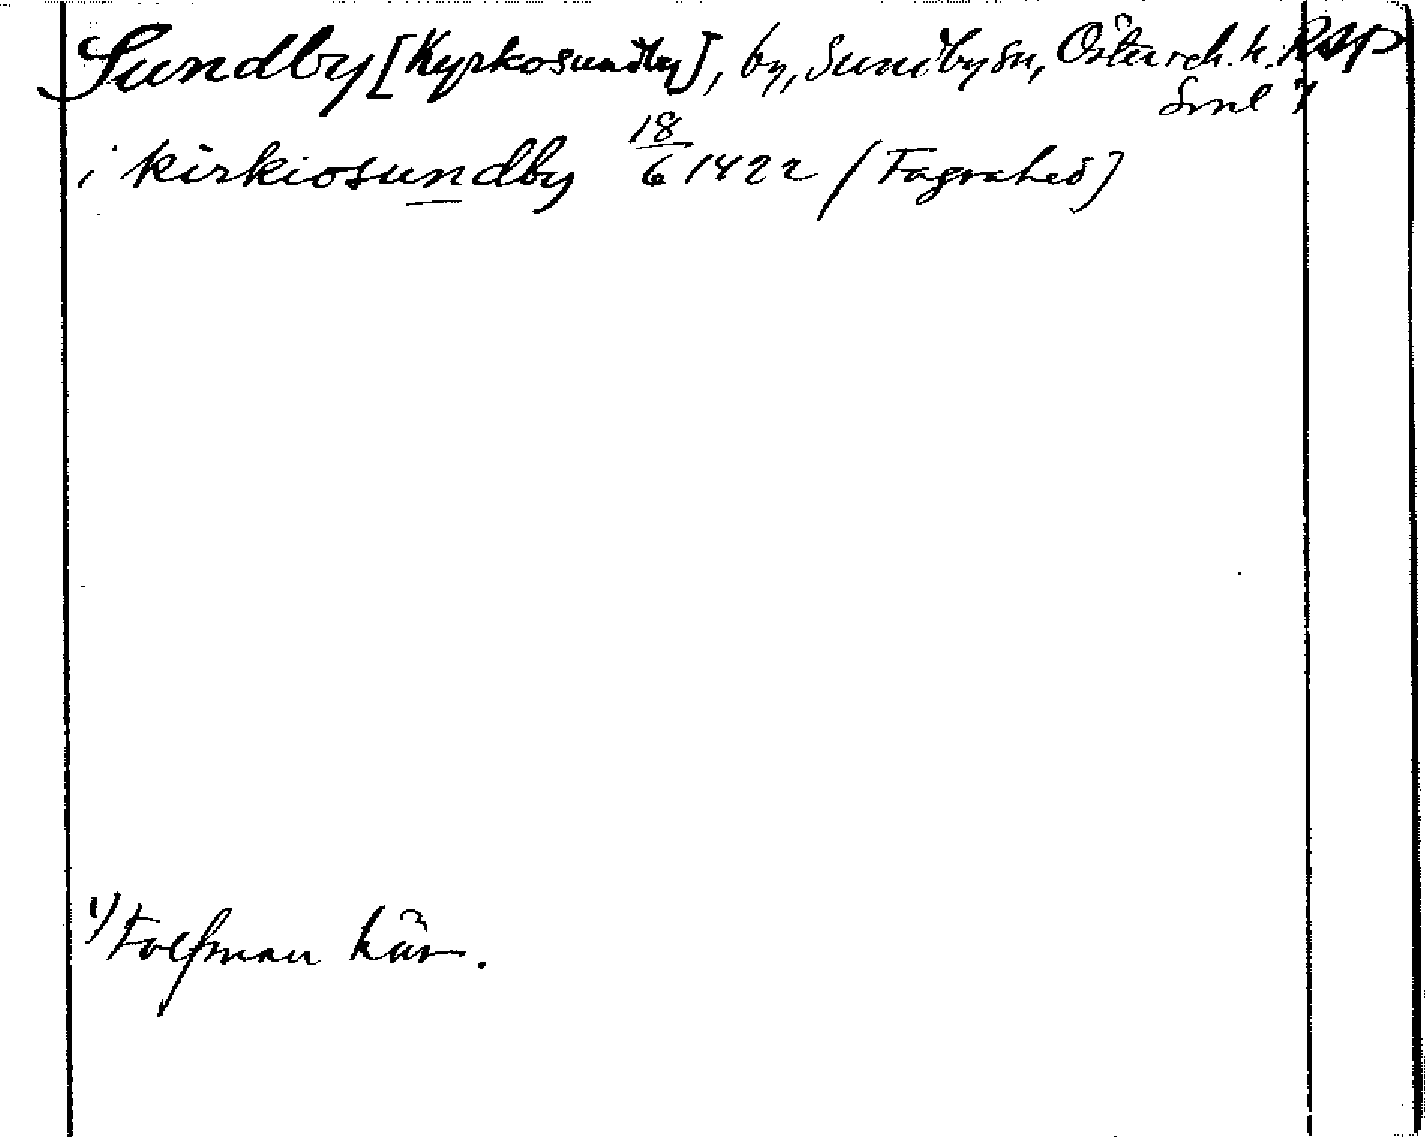 Sundby [Kyrkosundby], by, Sundby sn, Österreh. h. RAP
Sml 7
i kirkiosundby 18/6 1422 (Fagrahed)
1) Tolfman här.